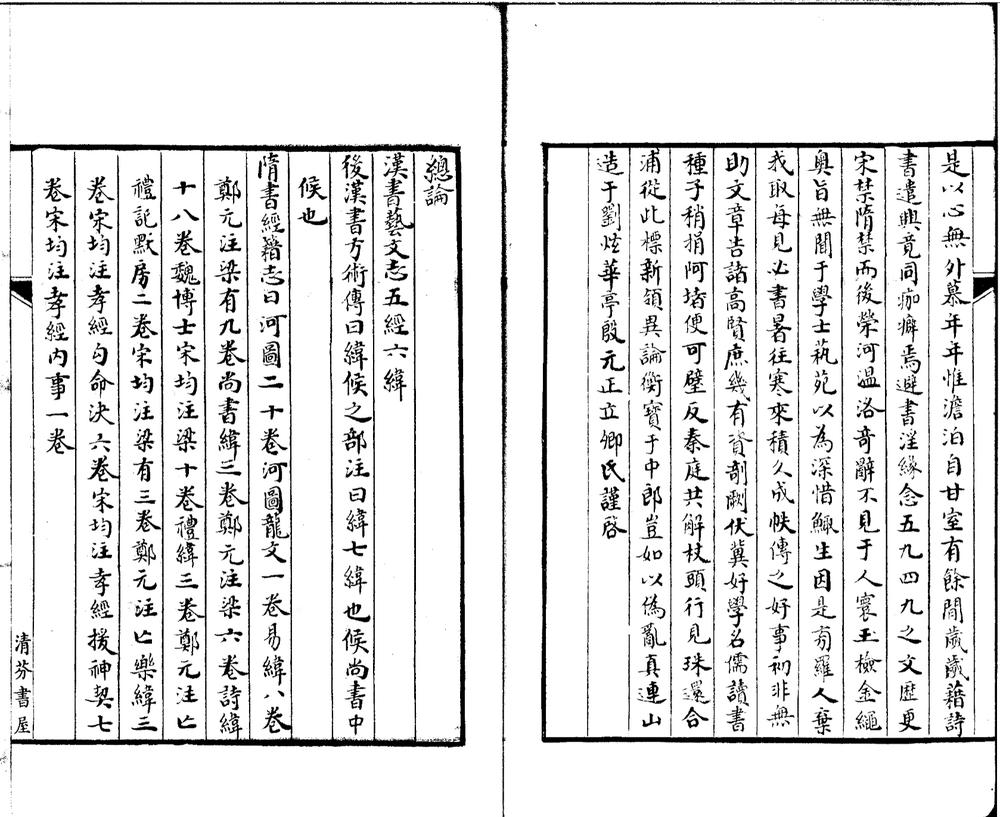 是以心無外慕年年惟澹泊自甘室有餘閒歲歲藉詩
書遣興竟同痂癖焉避書淫緣念五九四九之文歷更
宋禁隋禁而後榮河溫洛奇辭不見于人寰玉檢金繩
奥旨無聞于學士藝苑以為深惜鯫生因是旁羅人棄
我取每見必書暑往寒來積久成帙傳之好事初非無
助文章告諸高賢庶幾有資剞劂伏冀好學名儒讀書
種子稍捐阿堵便可壁反秦庭共解杖頭行見珠還合
浦從此標新領異論衡寶于中郎豈如以偽亂真連山
造于劉炫華亭殷元正立卿氏謹啓
總論
漢書藝文志五經六緯
後漢書方術傳曰緯候之部注曰緯七緯也候尚書中
候也
隋書經籍志曰河圖二十卷河圖龍文一卷易緯八卷
鄭元注梁有九卷尚書緯三卷鄭元注梁六卷詩緯
十八卷魏博士宋均注梁十卷禮緯三卷鄭元注亡
禮記默房二卷宋均注梁有三卷鄭元注亡樂緯三
卷宋均注孝經勾命决六卷宋均注孝經援神契七
卷宋均注孝經内事一卷
清芬書屋